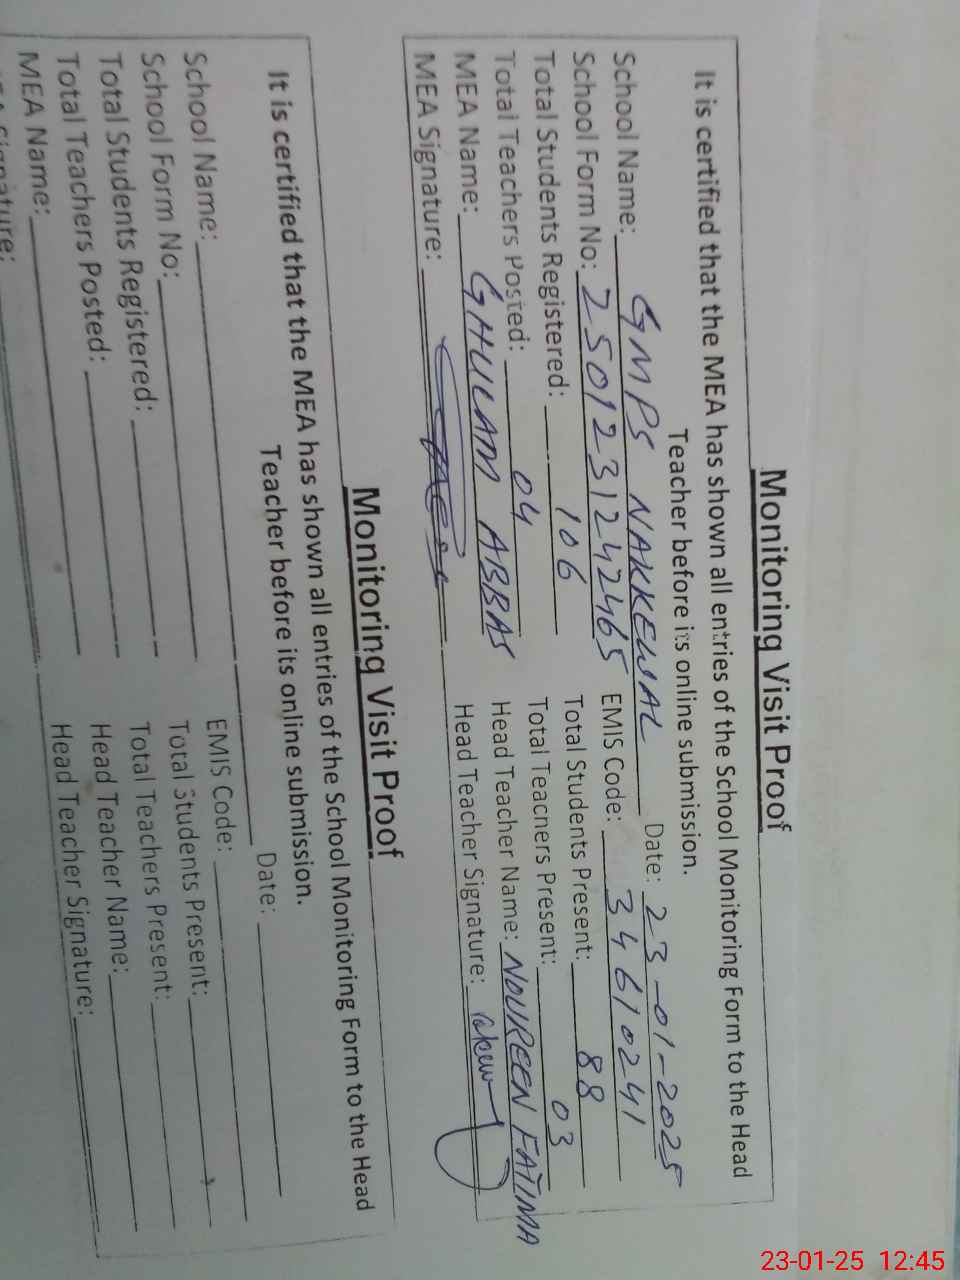 Monitoring Visit Proof
It is certified that the MEA has shown all entries of the School Monitoring Form to the Head
Teacher before its online submission.
School Name: GMPS NAKKEWAL Date: 23-01-2025
School Form No: 250123124 2465 EMIS Code: 34610241
Total Students Registered: 106 Total Students Present: 88
Total Teachers Posted: 04 Total Teachers Present: 03
MEA Name: GHULAM ABBAS Head Teacher Name: NOUREEN FATIMA
MEA Signature: Head Teacher Signature:
Monitoring Visit Proof
It is certified that the MEA has shown all entries of the School Monitoring Form to the Head
Teacher before its online submission.
School Name: Date:
School Form No: EMIS Code:
Total Students Registered: Total Students Present:
Total Teachers Posted: Total Teachers Present:
MEA Name: Head Teacher Name:
MEA Signature: Head Teacher Signature:
23-01-25 12:45